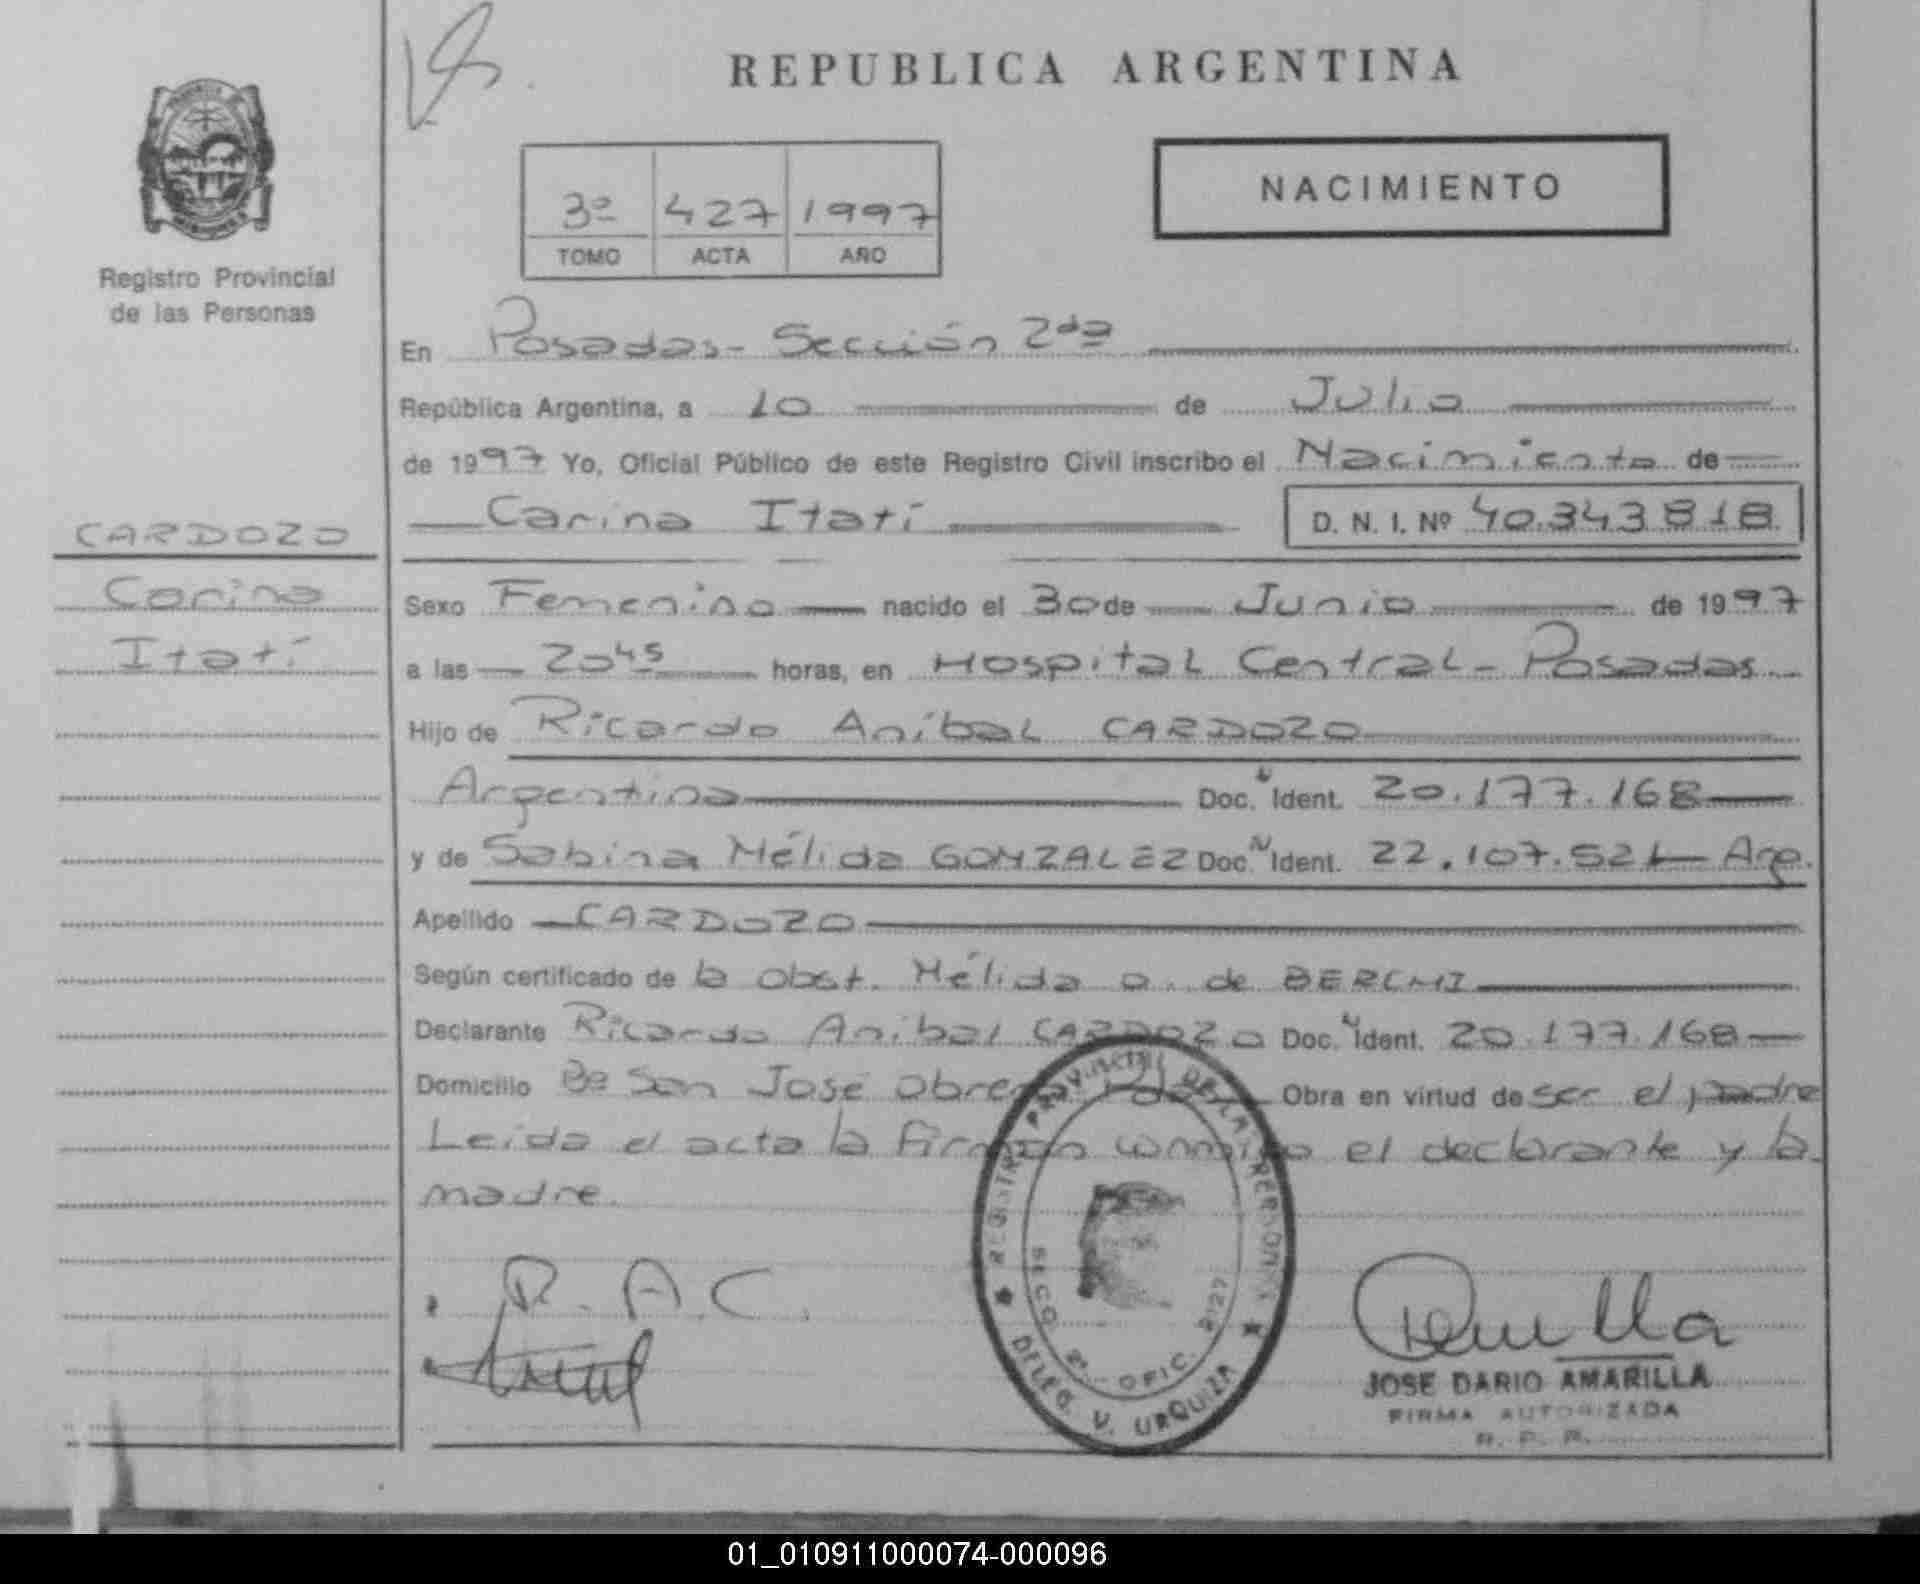 REPUBLICA ARGENTINA
NACIMIENTO
3º 427 1997
TOMO ACTA AÑO
Registro Provincial
de las Personas
CARDOZO
Carina
Itatí
En Posadas - Sección 2da
República Argentina, a 10 de Julio
de 1997 Yo, Oficial Público de este Registro Civil inscribo el Nacimiento de
Carina Itatí D. N. I. Nº 40.343.818
Sexo Femenino nacido el 30 de Junio de 1997
a las 20 45 horas, en Hospital Central - Posadas
Hijo de Ricardo Aníbal CARDOZO
Argentina Doc. Ident. 20.177.168
y de Sabina Mélida GONZALEZ Doc. Ident. 22.107.521 Arg.
Apellido CARDOZO
Según certificado de la Obst. Mélida a. de
Declarante Ricardo Aníbal CARDOZO Doc. Ident. 20.177.168
Domicilio Bº San José Obrero Obra en virtud de ser el padre
Leída el acta la firman conmigo el declarante y la
madre.
R. A. C.
REGISTRO PROVINCIAL DE LAS PERSONAS
SECC. 2ª - OFIC. 2127
DELEG. V. URQUIZA
JOSE DARIO AMARILLA
FIRMA AUTORIZADA
R. P. P.
01_010911000074-000096